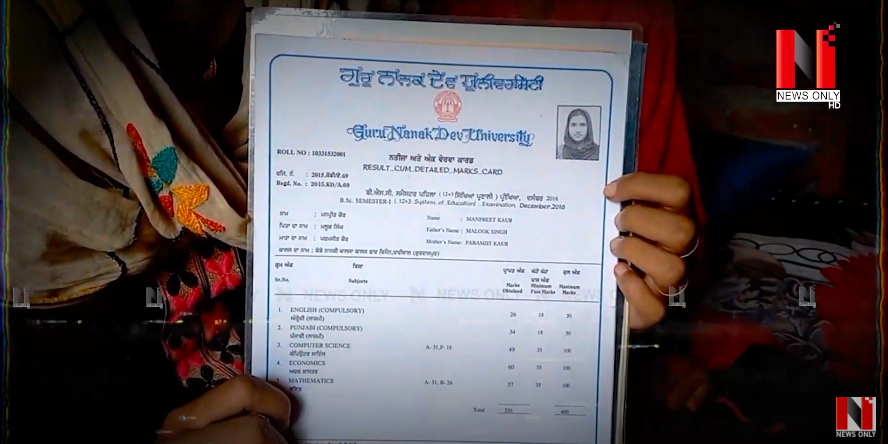 ਗੁਰੂ ਨਾਨਕ ਦੇਵ ਯੂਨੀਵਰਸਿਟੀ
Guru Nanak Dev University
ROLL NO : 10331532001
ਨਤੀਜਾ ਅਤੇ ਅੰਕ ਵੇਰਵਾ ਕਾਰਡ
RESULT_CUM_DETAILED_MARKS_CARD
Regd. No. : 2015.KD/A.69
B.Sc. SEMESTER-I (12+3_System_of_Education)_Examination, December,2016
ਨਾਮ : ਮਨਪ੍ਰੀਤ ਕੌਰ Name : MANPREET KAUR
ਪਿਤਾ ਦਾ ਨਾਮ : ਮਲੂਕ ਸਿੰਘ Father's Name : MALOOK SINGH
ਮਾਤਾ ਦਾ ਨਾਮ : ਪਰਮਜੀਤ ਕੌਰ Mother's Name: PARAMJIT KAUR
ਵਿਸ਼ਾ
Sr.No. Subjects Marks Obtained Minimum Pass Marks Maximum Marks
1. ENGLISH (COMPULSORY) 26 18 50
ਅੰਗ੍ਰੇਜ਼ੀ (ਲਾਜ਼ਮੀ)
2. PUNJABI (COMPULSORY) 34 18 50
ਪੰਜਾਬੀ (ਲਾਜ਼ਮੀ)
3. COMPUTER SCIENCE A- 31,P- 18 49 35 100
ਕੰਪਿਊਟਰ ਸਾਇੰਸ
4. ECONOMICS 60 35 100
ਅਰਥ ਸ਼ਾਸਤਰ
5. MATHEMATICS A- 31, B- 26 57 35 100
ਗਣਿਤ
Total 226 400
NEWS ONLY
HD
NEWS ONLY
NEWS ONLY
NEWS ONLY